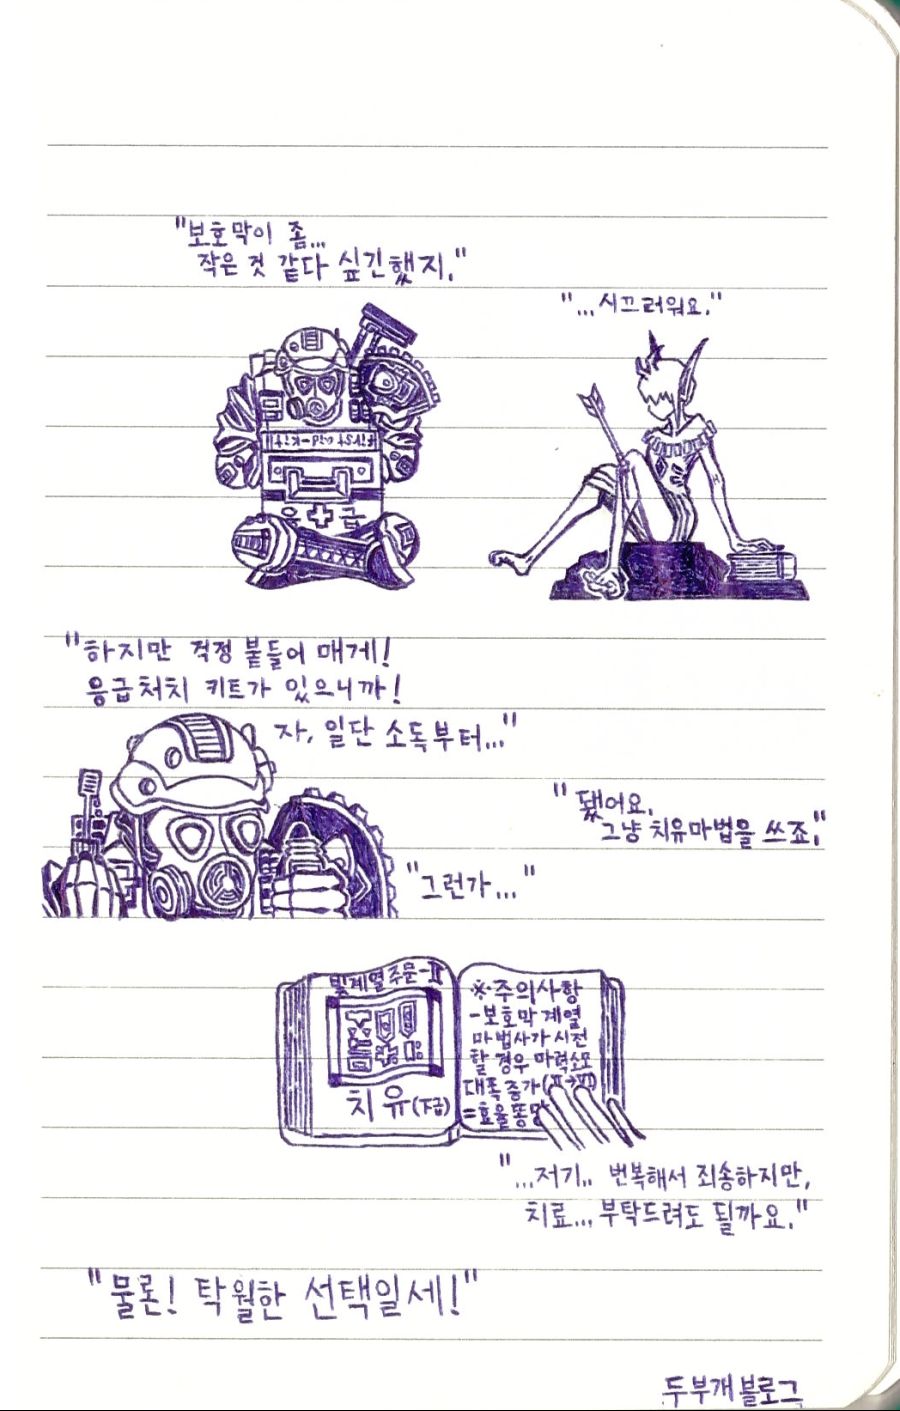 "보호막이 좀...
작은 것 같다 싶긴했지."
"...시끄러워요."
First aid-kit
응급
"하지만 걱정 붙들어 매게!
응급처치 키트가 있으니까!
자, 일단 소독부터..."
"됐어요.
그냥 치유마법을 쓰죠."
"그런가..."
빛계열주문-II
치유(下급)
※주의사항
-보호막 계열
마법사가 시전
할 경우 마력소모
대폭증가(II→VI)
=효율똥망
"...저기.. 번복해서 죄송하지만,
치료... 부탁드려도 될까요."
"물론! 탁월한 선택일세!"
두부개블로그